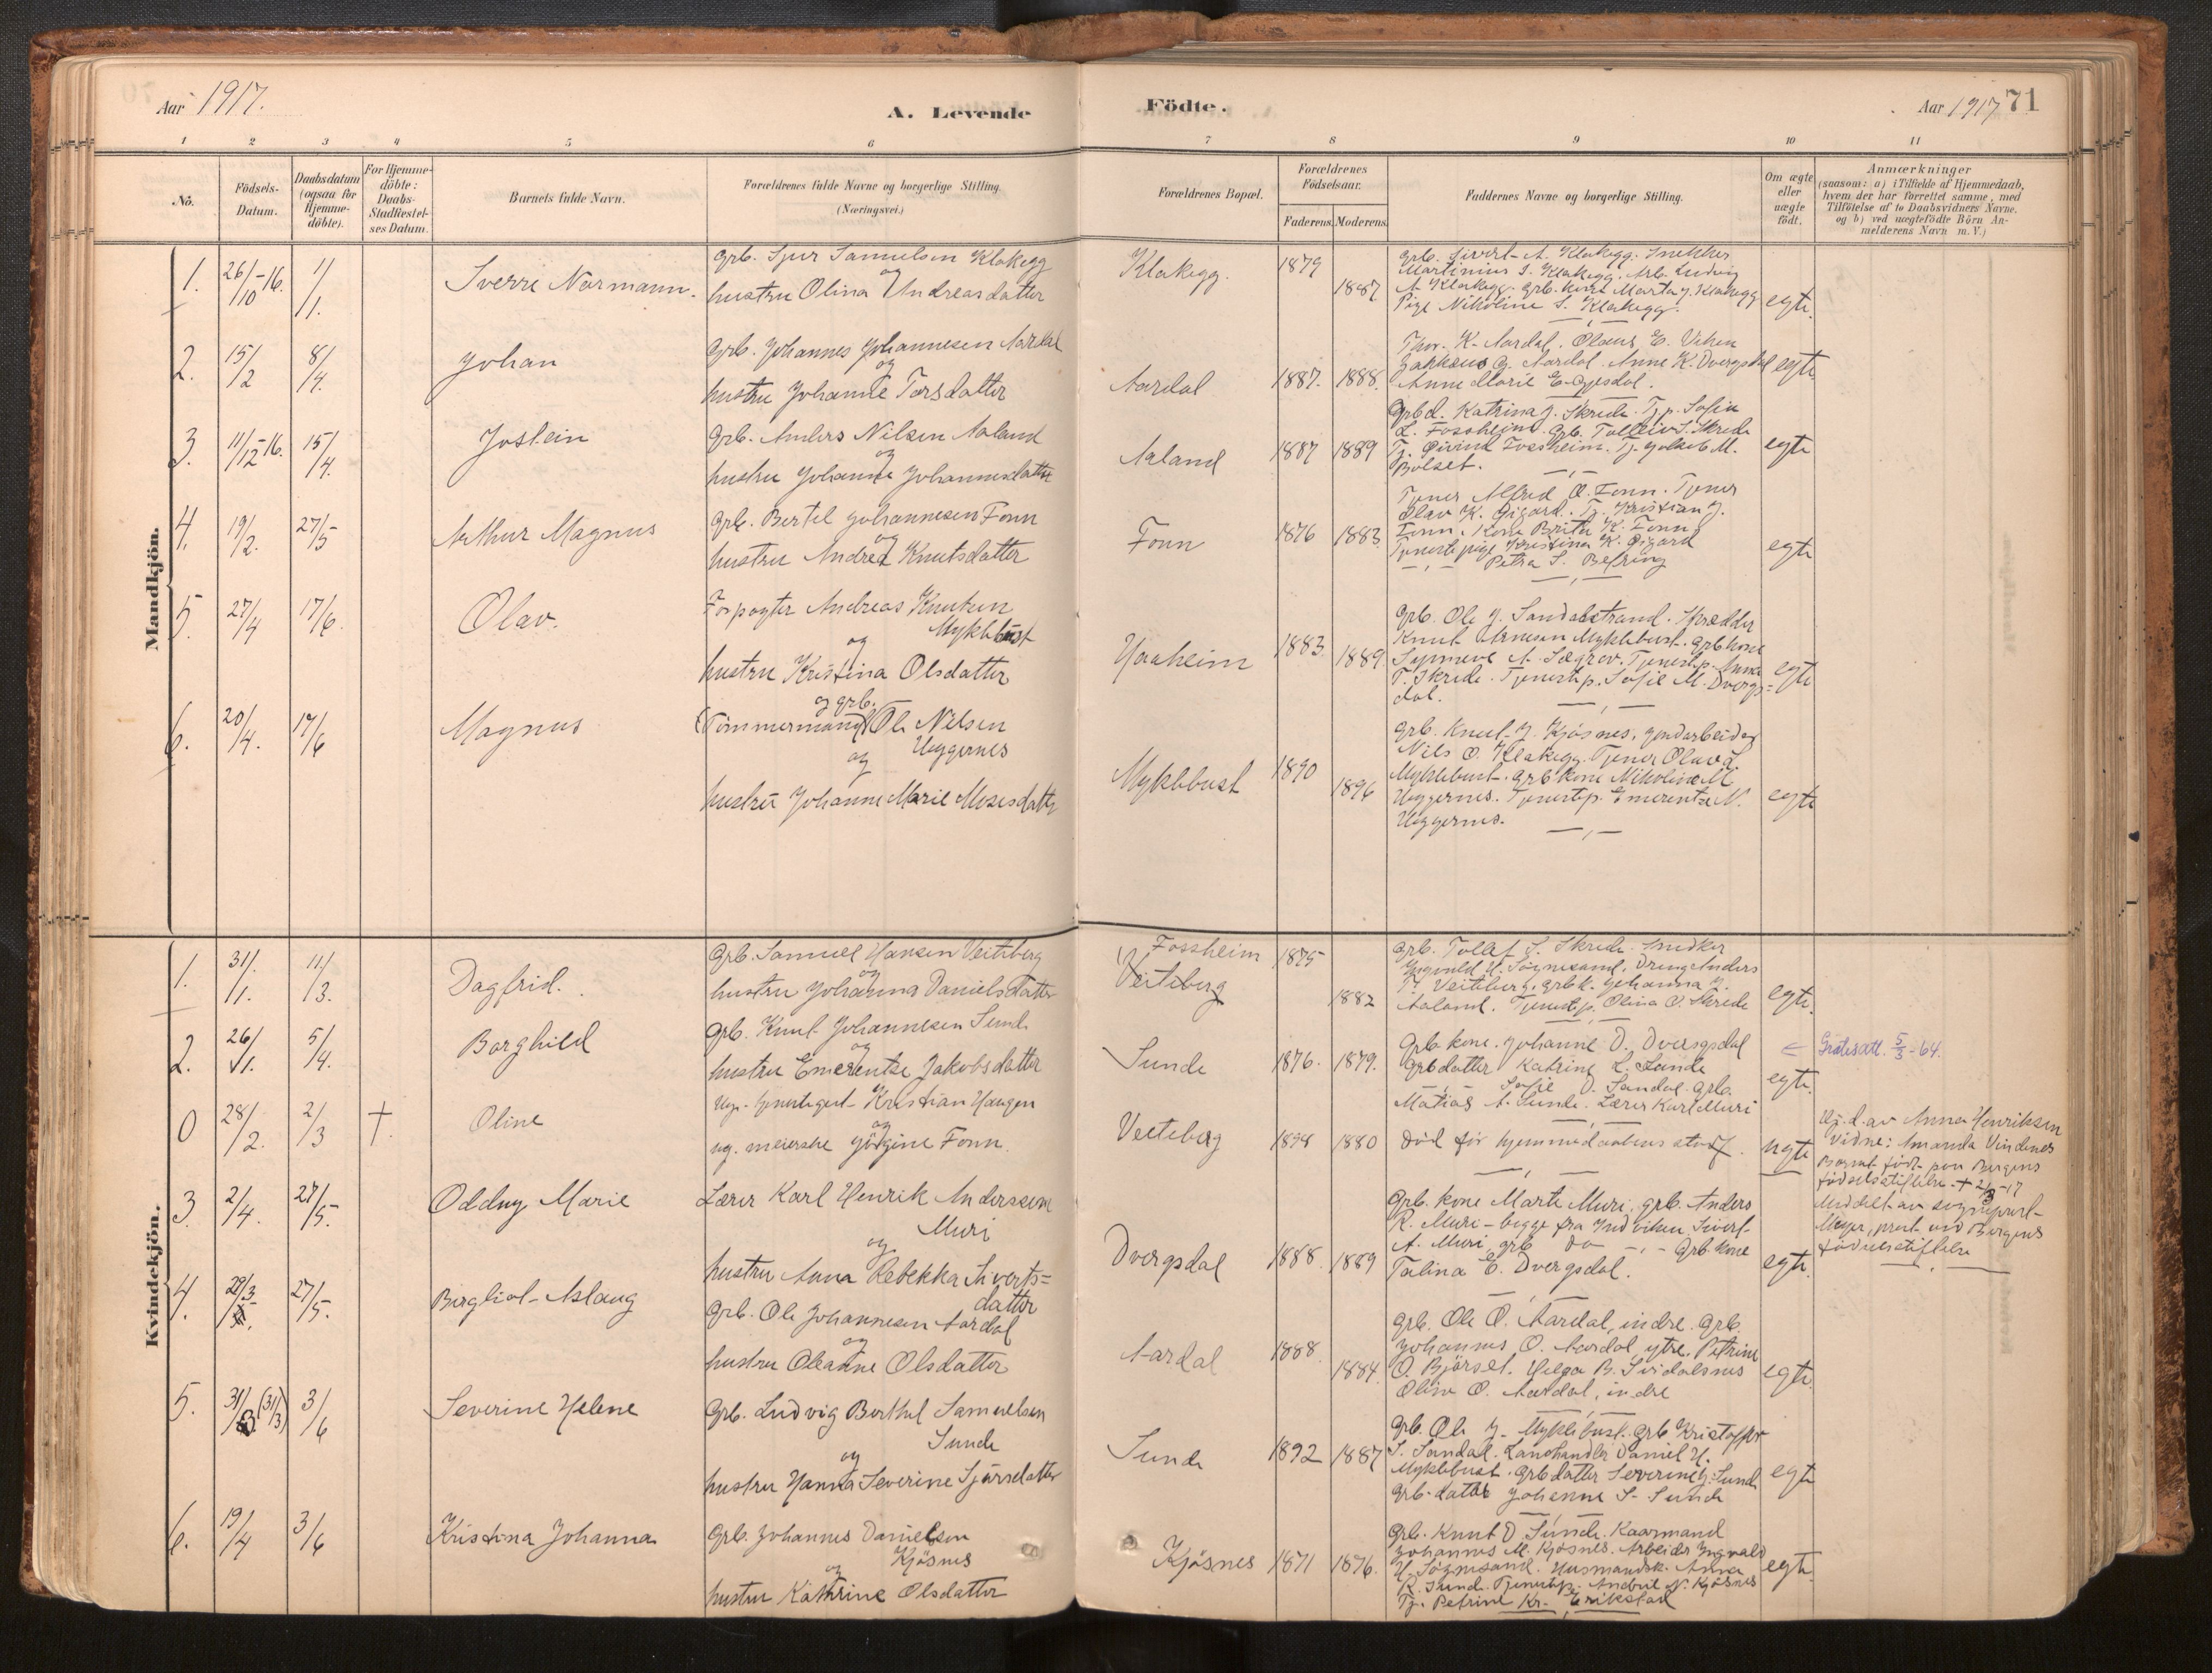 Aar 1917.
A. Levende
Födte.
Aar 1917
71
1 2 3 4 5 6 7 8 9 10 11
No.
Födsels-
Datum.
Daabsdatum
(ogsaa for
Hjemme-
döbte).
For Hjemme-
döbte:
Daabs-
Stadfæstel-
ses Datum.
Barnets fulde Navn.
Forældrenes fulde Navne og borgerlige Stilling.
(Næringsvei.)
Forældrenes Bopæl.
Forældrenes
Födselsaar.
Faderens. Moderens.
Faddernes Navne og borgerlige Stilling.
Om ægte
eller
uægte
født.
Anmærkninger
(saasom: a) i Tilfælde af Hjemmedaab,
hvem der har forrettet samme, med
Tilföielse af to Daabsvidners Navne,
og b) ved uægtefödte Börn An-
melderens Navn m. V.)
Mandkjön.
1. 26/10-16. 1/1. Sverre Normann.
Grb. Sjur Samuelsen Klakegg
og
hustru Olina Andreasdatter
Klakegg. 1879 1887
Grb. Sivert A. Klakegg. Snekker
Martinius S. Klakegg. Arb. Ludvig
A. Klakegg. Grb. kone Marta J. Klakegg
Pige Nikoline S. Klakegg.
egte.
2. 15/2 8/4. Johan
Grb. Johannes Johannesen Aardal
og
hustru Johanne Torsdatter
Aardal 1887. 1888.
Thor. K. Aardal. Olaus E. Viken
Zakkeus J. Aardal. Anne K. Dvergsdal
Anne Marie E.
egte
3. 11/12-16. 15/4. Jostein
Grb. Anders Nilsen Aaland
og
hustru Johanne Johannesdatter
Aaland 1887 1889
Grbd. Katrina J. Skrede. Tj. p. Sofie
L. Fossheim. Grb. Tolleiv S. Skrede
Tj. Øivind Fossheim. Tj. Jakob M.
Bolset.
egte
4. 19/2. 27/5 Arthur Magnus
Grb. Bertel Johannesen Fonn
og
hustru Andrea Knutsdatter
Fonn 1876 1883.
Tjener Alfred O. Fonn. Tjener
Olav K. Øigard. Tj. Kristian J.
Fonn. Kone Brita K. Fonn
Tjenestepige Kristina K. Øigard
-,- Petra S. Befring
egte
5. 27/4 17/6. Olav.
Forpagter Andreas Knutsen
Myklebust
og
hustru Kristina Olsdatter
Haaheim 1883. 1889.
Grb. Ole J. Sandalstrand. Skrædder
Knut Arnesen Myklebust. Grb. kone
Synneve A. Sægrov. Tjenestp. Anna
T. Skrede. Tjenestp. Sofie M. Dvergs=
dal.
egte
6. 20/4. 17/6 Magnus
og grb.
(Tømmermand) Ole Nilsen
Heggernes
og
hustru Johanne Marie Mosesdatter
Myklebust 1890 1896
Grb. Knut J. Kjøsnes, gaardarbeider
Nils O. Klakegg. Tjener Olav L.
Myklebust. Grb. kone Nikoline M.
Heggernes. Tjenestp. Emerentze N.
Heggernes.
egte
Kvindekjön.
1. 31/1. 11/3. Dagfrid.
Grb. Samuel Hansen Veiteberg
og
hustru Johanna Danielsdatter
Fossheim
Veiteberg 1875 1882
Grb. Tollef S. Skrede. Snedker
Ingvald H. Søgnesand, Dreng Anders
Veiteberg, grb. k. Johanna J.
Aaland. Tjenestp. Olina O. Skrede
egte.
2. 26/1. 5/4. Borghild
Grb. Knut Johannesen Sunde
og
hustru Emerentze Jakobsdatter
Sunde 1876. 1879.
Grb. kone. Johanne D. Dvergsdal
Grb. datter Katrine L. Sunde
Sofie O. Sandal. Grb.
Matias A. Sunde. Lærer Karl Muri
egte.
Gratisatt. 5/3-64.
0 28/2. 2/3 †. Oline
Ug. tjenestegut Kristian Haugen
og
ug. meierske Jørgine Fonn.
Veiteberg 1894 1880
Død før hjemmedaabens stadf.
uegte
Uj. d. av Anna Henriksen
Vidne: Amanda Vindenes
Barnet født paa Bergens
fødselsstiftelse. + 2/3-17
Meddelt av sogneprest
Meyer, prest ved Bergens
fødselsstiftelse
3. 2/4. 27/5. Oddny Marie
Lærer Karl Henrik Anderssen
Muri
og
hustru Anna Rebekka Siverts=
datter
Dvergsdal 1888. 1889
Grb. kone Marte Muri, grb. Anders
R. Muri - begge fra Indviken Sivert
A. Muri grb do -,- Grb. kone
Talina E. Dvergsdal.
egte.
4. 28/3. 27/5. Borgliot Aslaug
Grb. Ole Johannesen Aardal
og
hustru Oleanne Olsdatter
Aardal 1888. 1884.
Grb. Ole O. Aardal, indre. Grb.
Johannes O. Aardal, ytre. Petrine
O. Bjørset. Helga B. Sridalsnes
Olina O. Aardal, indre
egte.
5. 31/3 (31/3) 3/6 Severine Helene
Grb. Ludvig Berthel Samuelsen
Sunde
og
hustru Hanna Severine Sjursdatter
Sunde 1892 1887
Grb. Ole J. Myklebust. Grb Kristoffer
S. Sandal. Landhandler Daniel H.
Myklebust. Grb datter Severine J. Sunde
Grb. datter Johanne S. Sunde
egte
6. 19/4 3/6 Kristina Johanna
Grb. Johannes Danielsen
Kjøsnes
og
hustru Kathrine Olsdatter
Kjøsnes 1871 1876.
Grb. Knut D. Sunde. Kaarmand
Johannes M. Kjøsnes. Arbeider Ingvald
H. Søgnesand. Husmandsk. Anna
R. Sunde. Tjenestp. Andrie N. Kjøsnes
Tj. Petrine Kr. Erikstad
egte.